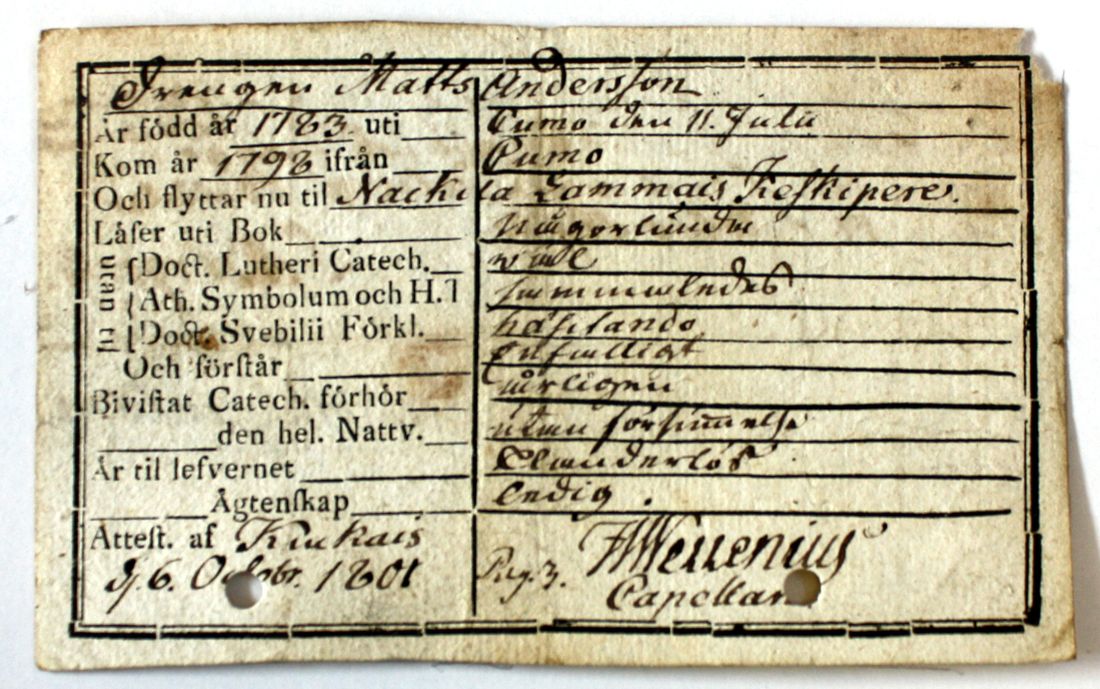 Drengen Matts Andersson
Är född år 1783 uti Cumo den 11. Julii
Kom år 1798 ifrån Cumo
Och flyttar nu til Nackila Lammais Keskipere.
Låſer uti Bok någorlunda
utan til
Doct. Lutheri Catech. wäl
Ath. Symbolum och H.T sammaledes
Doct. Svebilii Förkl. häsitando
Och förſtår enfalligt
Biviſtat Catech. förhör årligen
den hel. Nattv. utan försummelse
Är til lefvernet Clanderlös
Ägtenſkap ledig.
Atteſt. af Kiukais
d. 6. Octobr. 1801 Pag. 3.
Capellan